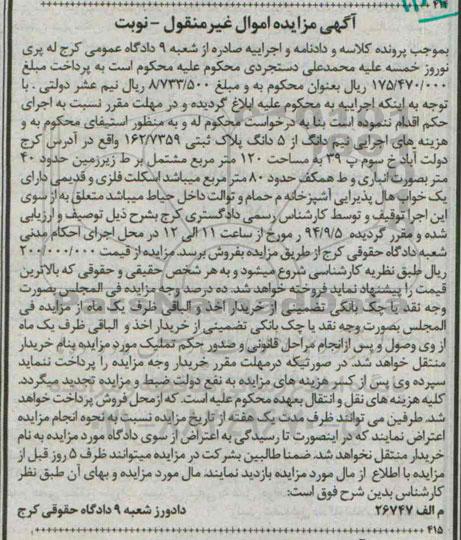 ۴۱۴
آگهی مزایده اموال غیرمنقول - نوبت
بموجب پرونده کلاسه و دادنامه و اجراییه صادره از شعبه ۹ دادگاه عمومی کرج له پری
نوروز خمسه علیه محمدعلی دستجردی محکوم علیه محکوم است به پرداخت مبلغ
۱۷۵/۴۷۰/۰۰۰ ریال بعنوان محکوم به و مبلغ ۸/۷۳۳/۵۰۰ ریال نیم عشر دولتی . با
توجه به اینکه اجراییه به محکوم علیه ابلاغ گردیده و در مهلت مقرر نسبت به اجرای
حکم اقدام ننموده است بنا به درخواست محکوم له و به منظور استیفای محکوم به و
هزینه های اجرایی نیم دانگ از ۵ دانگ پلاک ثبتی ۱۶۲/۷۳۵۹ واقع در آدرس کرج
دولت آباد خ سوم پ ۳۹ به مساحت ۱۲۰ متر مربع مشتمل بر ط زیرزمین حدود ۴۰
متر بصورت انباری و ط همکف حدود ۸۰ متر مربع میباشد اسکلت فلزی و قدیمی دارای
یک خواب هال پذیرایی آشپزخانه م حمام و توالت داخل حیاط میباشد متعلق به از سوی
این اجرا توقیف و توسط کارشناس رسمی دادگستری کرج بشرح ذیل توصیف و ارزیابی
شده و مقرر گردیده ۹۴/۹/۵ ر مورج از ساعت ۱۱ الی ۱۲ در محل اجرای احکام مدنی
شعبه دادگاه حقوقی کرج از طریق مزایده بفروش برسد. مزایده از قیمت ۲۰۰/۰۰۰/۰۰۰
ریال طبق نظریه کارشناسی شروع میشود و به هر شخص حقیقی و حقوقی که بالاترین
قیمت را پیشنهاد نماید فروخته خواهد شد. ده درصد وجه مزایده فی المجلس بصورت
وجه نقد یا چک بانکی تضمینی از خریدار اخذ و الباقی ظرف یک ماه از مزایده فی
المجلس بصورت وجه نقد یا چک بانکی تضمینی از خریدار اخذ و الباقی ظرف یک ماه
از وی وصول و پس از انجام مراحل قانونی و صدور حکم تملیک مورد مزایده بنام خریدار
منتقل خواهد شد. در صورتیکه درمهلت مقرر خریدار وجه مزایده را پرداخت ننماید
سپرده وی پس از کسر هزینه های مزایده به نفع دولت ضبط و مزایده تجدید میگردد.
کلیه هزینه های نقل و انتقال بعهده محکوم علیه است. که از محل فروش پرداخت خواهد
شد. طرفین می توانند ظرف مدت یک هفته از تاریخ مزایده نسبت به نحوه انجام مزایده
اعتراض نمایند که در اینصورت تا رسیدگی به اعتراض از سوی دادگاه مورد مزایده به نام
خریدار منتقل نخواهد شد. ضمنا طالبین بشرکت در مزایده میتوانند ظرف ۵ روز قبل از
مزایده با اطلاع از مال مورد مزایده بازدید نمایند. مال مورد مزایده و بهای آن طبق نظر
کارشناس بدین شرح فوق است:
م الف ۲۶۷۴۷ دادورز شعبه ۹ دادگاه حقوقی کرج
۴۱۵